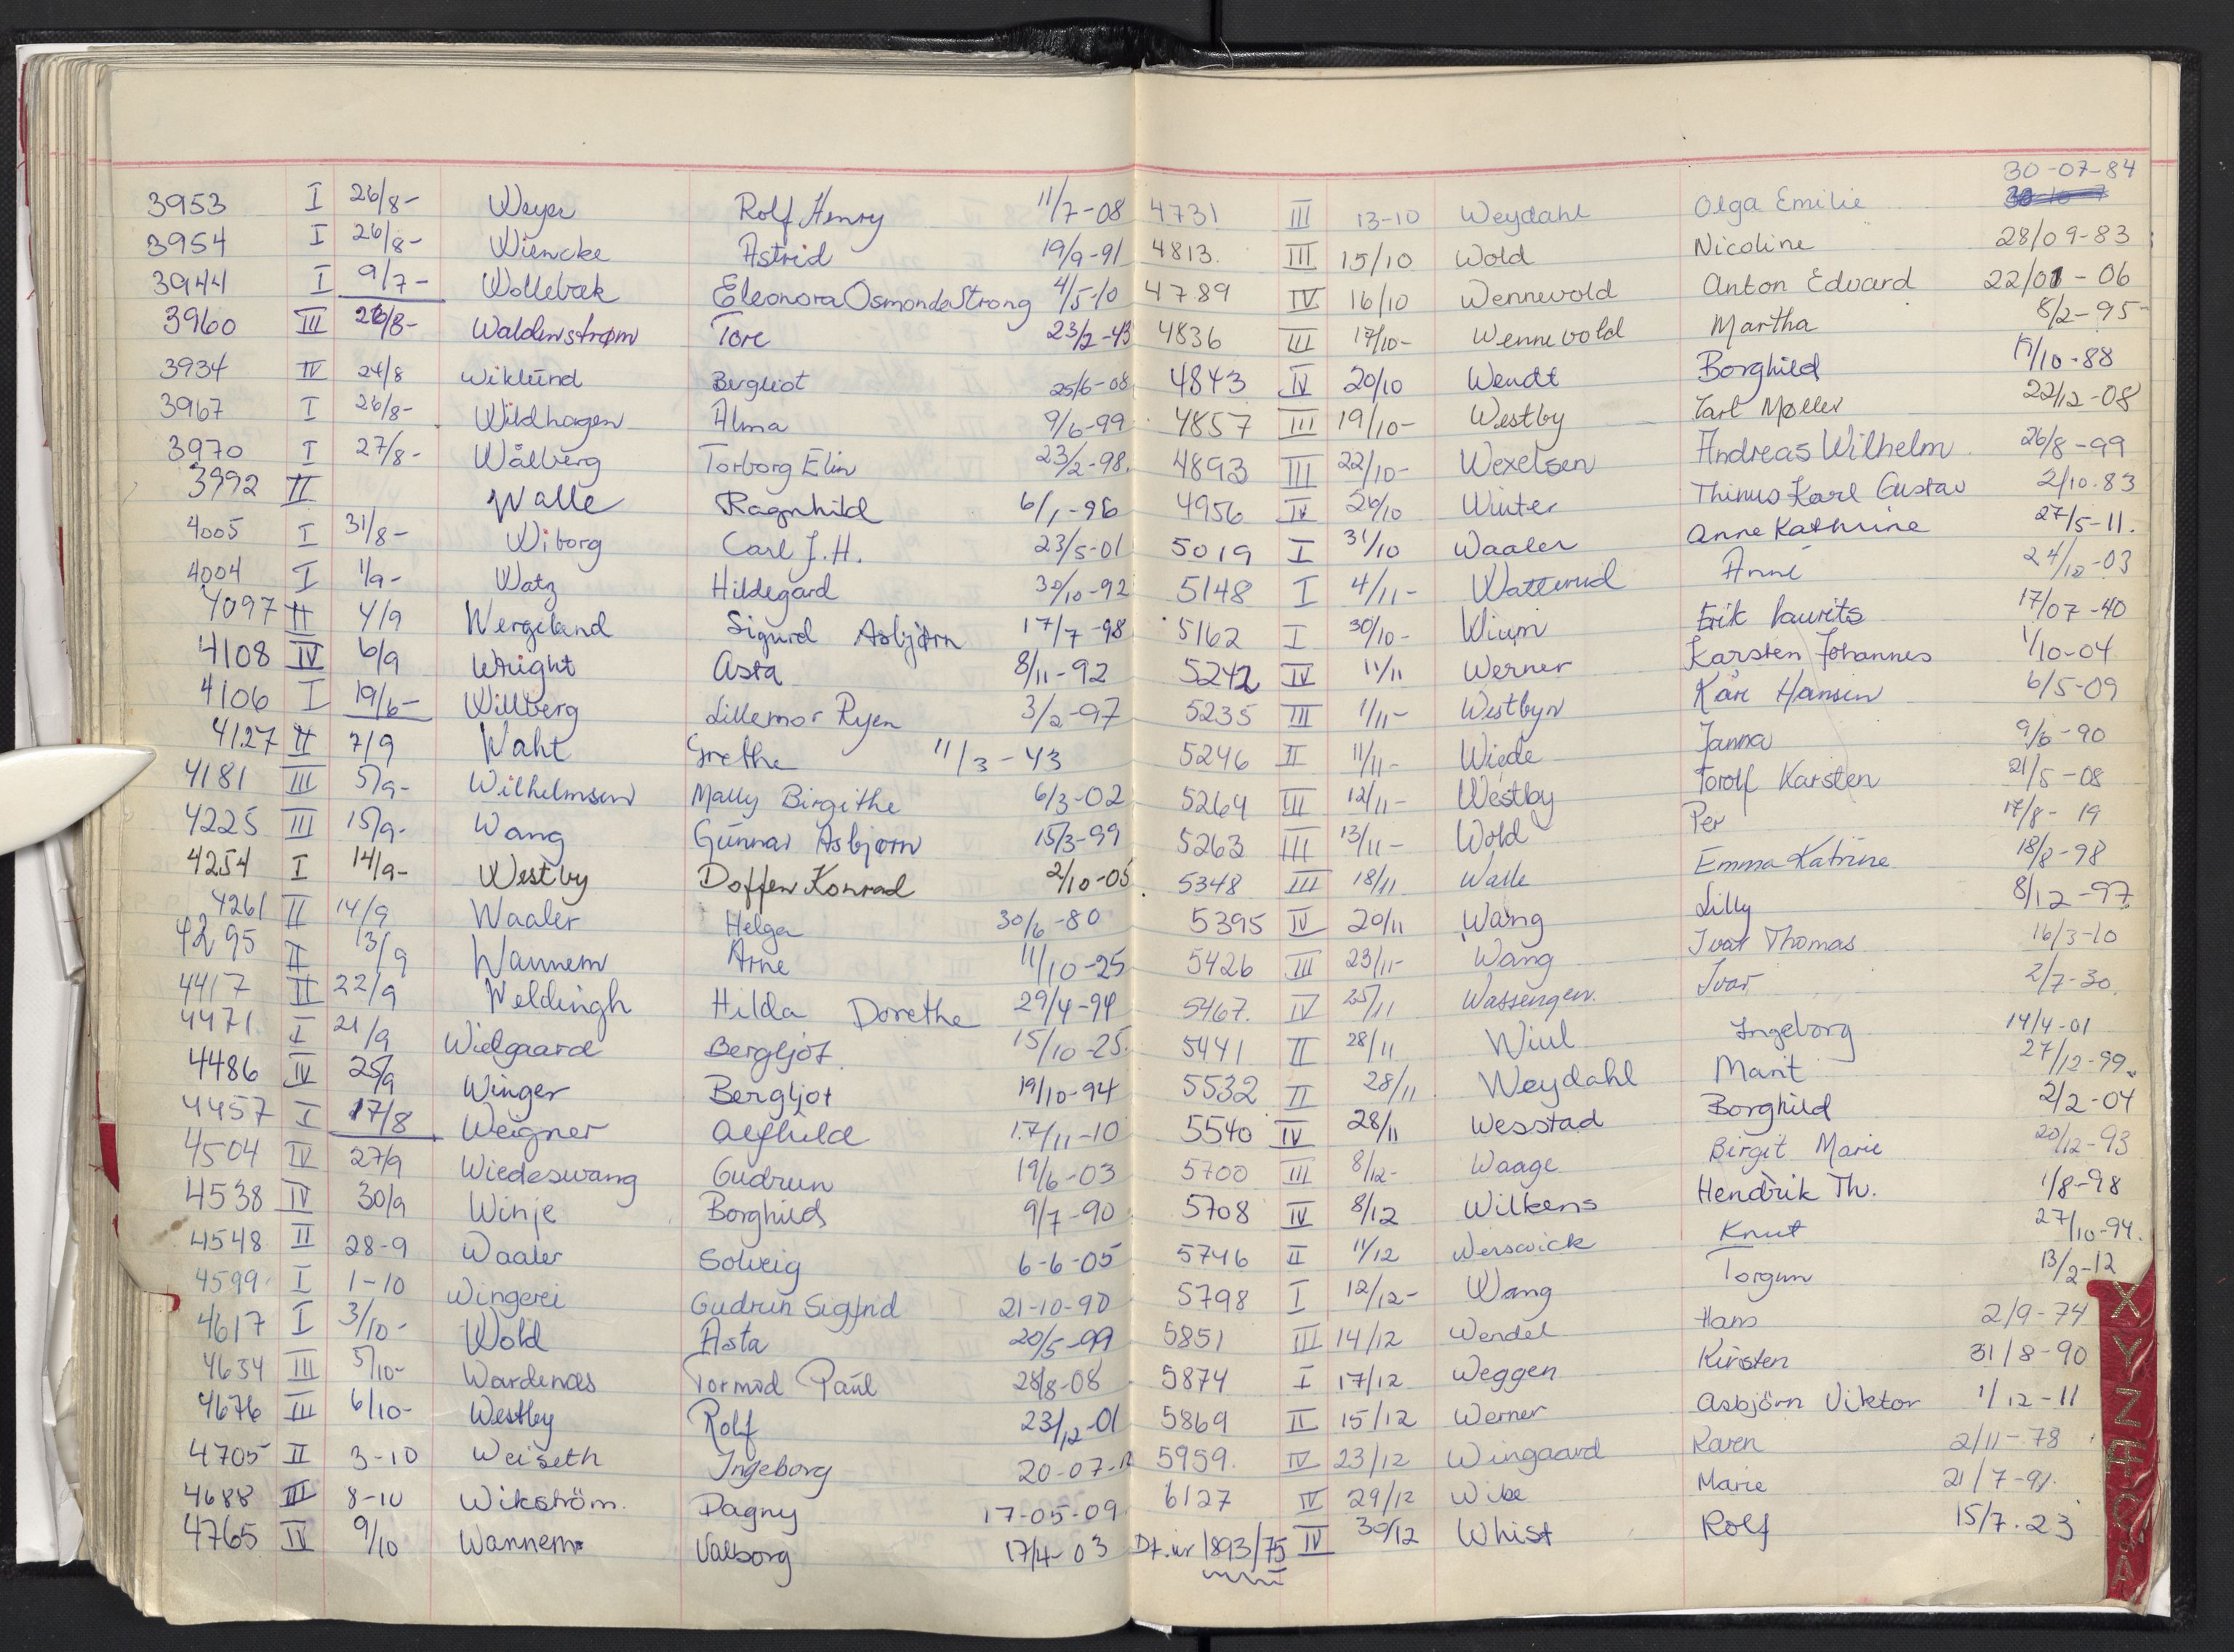 3953 I 26/8- Weyer Rolf Henry 11/7-08
3954 I 26/8- Wiencke Astrid 19/9-91
3944 I 9/7- Wollebæk Eleonora Osmonda Strong 4/5-10
3960 III 26/8- Waldenstrøm Tore 23/2-43
3934 IV 24/8 Wiklund Bergliot 25/6-08
3967 I 26/8- Wildhagen Alma 9/6-99
3970 I 27/8- Wålberg Torborg Elin 23/2-98
3992 II Walle Ragnhild 6/1-96
4005 I 31/8- Wiborg Carl J.H. 23/5-01
4004 I 1/9- Watz Hildegard 30/10-92
4097 II 4/9 Wergeland Sigurd Asbjørn 17/7-98
4108 IV 6/9 Wright Asta 8/11-92
4106 I 19/6- Willberg Lillemor Ryen 3/2-97
4127 II 7/9 Waht Grethe 11/3-43
4181 III 5/9- Wilhelmsen Mally Birgithe 6/3-02
4225 III 15/9- Wang Gunnar Asbjørn 15/3-99
4254 I 14/9- Westby Doffen Konrad 2/10-05
4261 II 14/9 Waaler Helga 30/6-80
4295 II 13/9 Wannem Arne 11/10-25
4417 II 22/9 Weldingh Hilda Dorethe 29/4-94
4471 I 21/9 Wielgaard Bergljot 15/10-25
4486 IV 25/9 Winger Bergljot 19/10-94
4457 I 17/8 Weigner Alfhild 17/11-10
4504 IV 27/9 Wiedeswang Gudrun 19/6-03
4538 IV 30/9 Winje Borghild 9/7-90
4548 II 28-9 Waaler Solveig 6-6-05
4599 I 1-10 Wingerei Gudrun Sigfrid 21-10-90
4617 I 3/10- Wold Asta 20/5-99
4634 III 5/10- Wardenæs Tormod Paul 28/8-08
4676 III 6/10- Westby Rolf 23/12-01
4705 II 3-10 Weiseth Ingeborg 20-07-
4688 III 8-10 Wikström. Dagny 17-05-09
4765 IV 9/10 Wannem Valborg 17/4-03
30-07-84
4731 III 13-10 Weydahl Olga Emilie
4813. III 15/10 Wold Nicoline 28/09-83
4789 IV 16/10 Wennevold Anton Edvard 22/01-06
4836 III 17/10- Wennevold Martha 8/2-95
4843 IV 20/10 Wendt Borghild /10-88
4857 III 19/10- Westby Karl Møller 22/12-08
4893 III 22/10- Wexelsen Andreas Wilhelm 26/8-99
4956 IV 26/10 Winter Thinus Karl Gustav 2/10.83
5019 I 31/10 Waaler Anne Kathrine 27/5-11.
5148 I 4/11- Watterud Anne 24/10-03
5162 I 30/10- Wium Erik Laurits 17/07-40
5242 IV 11/11 Werner Karsten Johannes 1/10-04
5235 III 1/11- Westbyn Kåre Hansen 6/5-09
5246 II 11/11- Wiede Janna 9/6-90
5264 III 12/11- Westby Torolf Karsten 21/5-08
5263 III 13/11- Wold Per 17/8-19
5348 III 18/11 Walle Emma Katrine 18/8-98
5395 IV 20/11 Wang Lilly 8/12-97
5426 III 23/11- Wang Ivar Thomas 16/3-10
5467. IV 25/11 Wassengen. Ivar 2/7-30.
5441 II 28/11 Wiul Ingeborg 14/4-01
5532 II 28/11 Weydahl Marit 27/12-99.
5540 IV 28/11 Wesstad Borghild 2/2-04
5700 III 8/12- Waage Birgit Marie 20/12-93
5708 IV 8/12 Wilkens Hendrik Th. 1/8-98
5746 II 11/12 Werswick Knut 27/10-94.
5798 I 12/12- Wang Torgun 13/2-12
5851 III 14/12 Wendel Hans 2/9-74
5874 I 17/12 Weggen Kirsten 31/8-90
5869 II 15/12 Werner Asbjörn Viktor 1/12-11
5959. IV 23/12 Wingaard Karen 2/11-78
6127 IV 29/12 Wibe Marie 21/7-91.
Dt.nr 1893/75 IV 30/12 Whist Rolf 15/7.23
X
Y
Z
Æ
Ø
Å